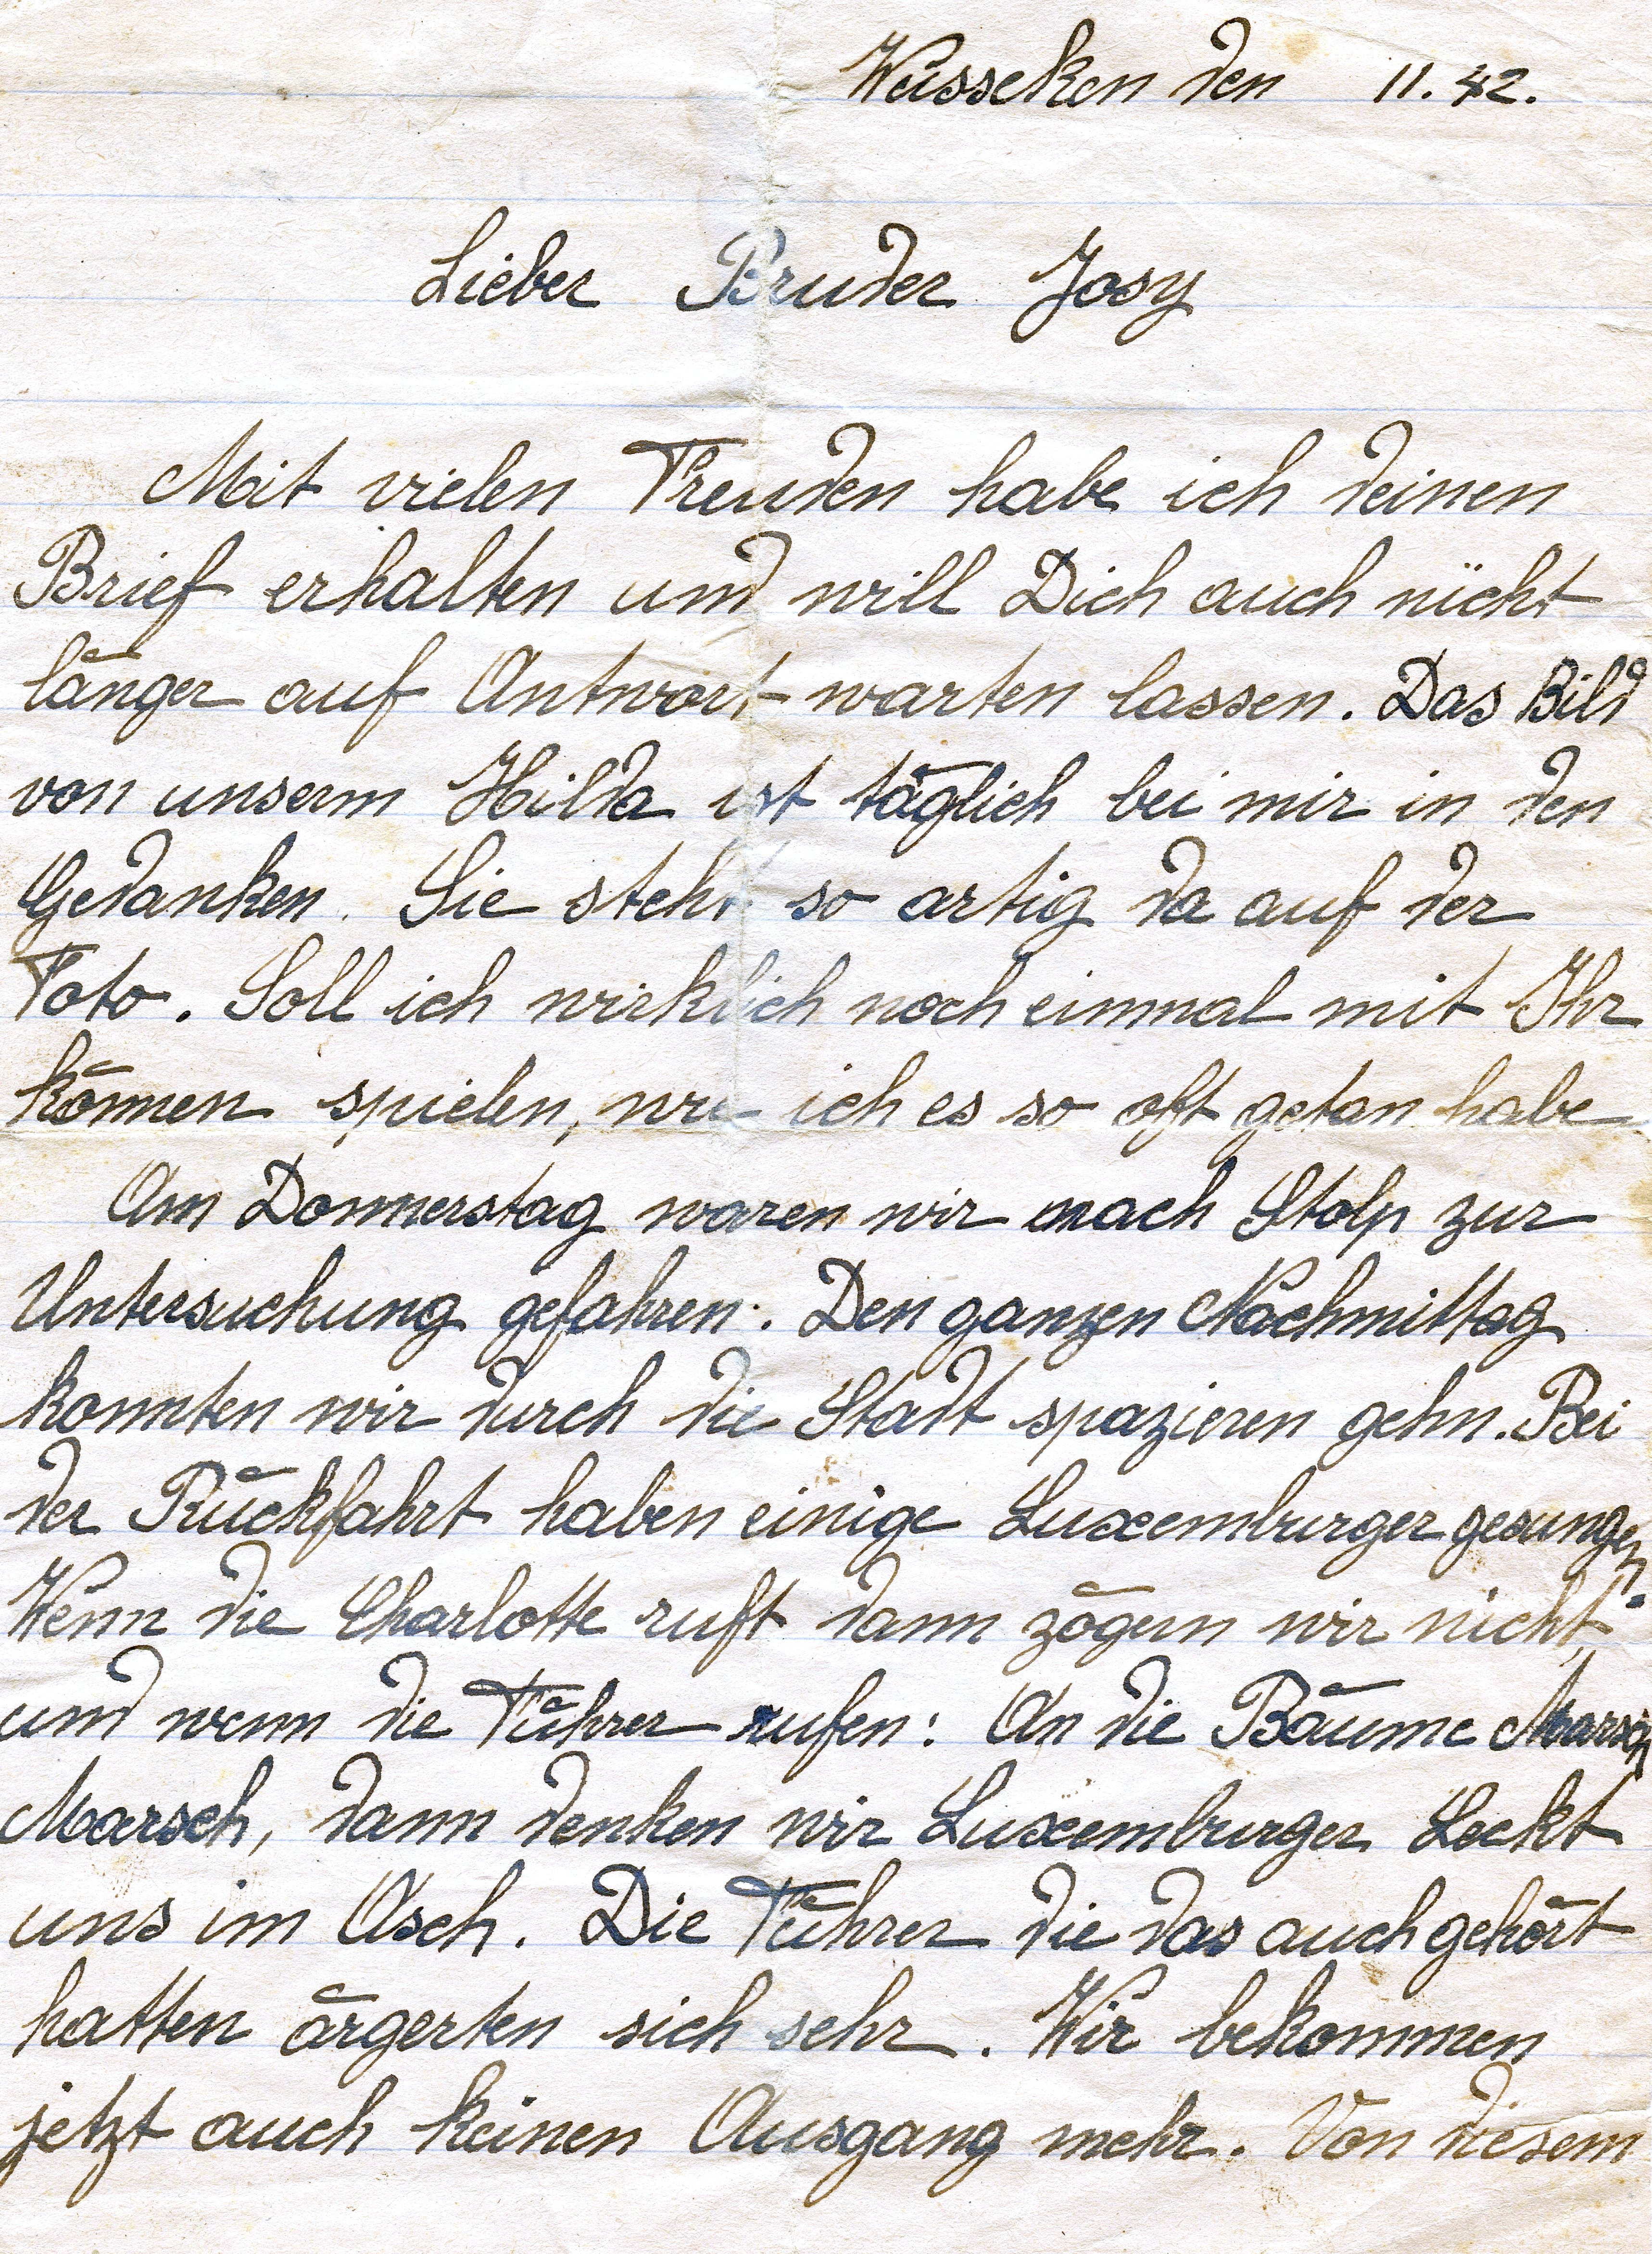 Wusseken den 11.42.
Lieber Bruder Josy
Mit vielen Freuden habe ich deinen
Brief erhalten und will Dich auch nicht
länger auf Antwort warten lassen. Das Bild
von unserm Hilda ist täglich bei mir in den
Gedanken. Sie steht so artig da auf der
Foto. Soll ich wirklich noch einmal mit Ihr
können spielen, wie ich es so oft getan habe
Am Donnerstag waren wir nach Stolp zur
Untersuchung gefahren. Den ganzen Nachmittag
konnten wir durch die Stadt spazieren gehn. Bei
der Rückfahrt haben einige Luxemburger gesungen.
Wenn die Charlotte ruft dann zögern wir nicht,
und wenn die Führer rufen: An die Bäume Marsch
Marsch, dann denken wir Luxemburger Leckt
uns im Asch. Die Führer die das auch gehört
hatten ärgerten sich sehr. Wir bekommen
jetzt auch keinen Ausgang mehr. Von diesem